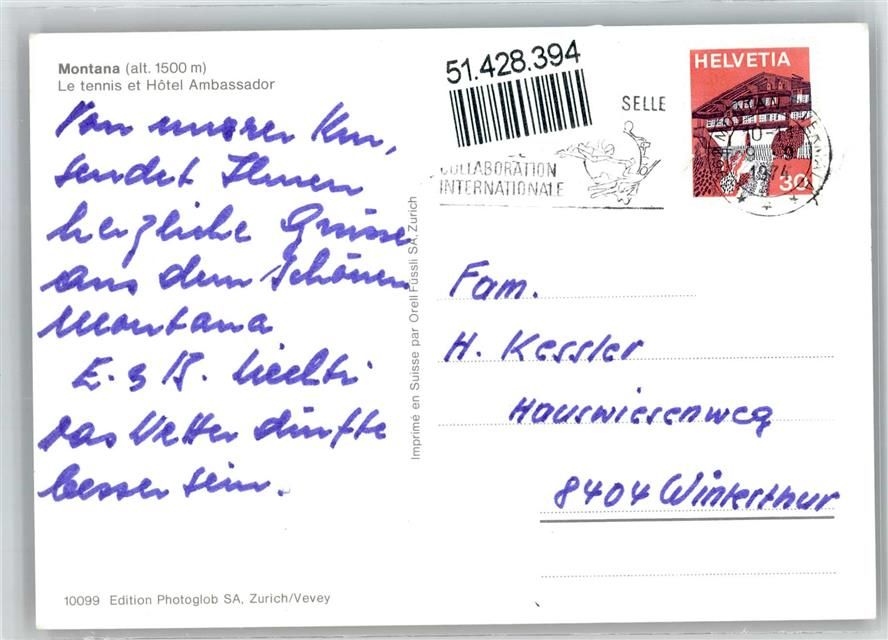 Montana (alt. 1500 m)
Le tennis et Hôtel Ambassador
Von unserer Kur,
sendet Ihnen
herzliche Grüsse
aus dem schönen
Montana
E. & B. Liechti
das Wetter dürfte
besser sein.
10099 Edition Photoglob SA, Zurich/Vevey
Imprimé en Suisse par Orell Füssli SA, Zurich
51.428.394
SELLE
COLLABORATION
INTERNATIONALE
HELVETIA
30
10
9 9
1974
Fam.
H. Kessler
Hauswiesenweg
8404 Winterthur